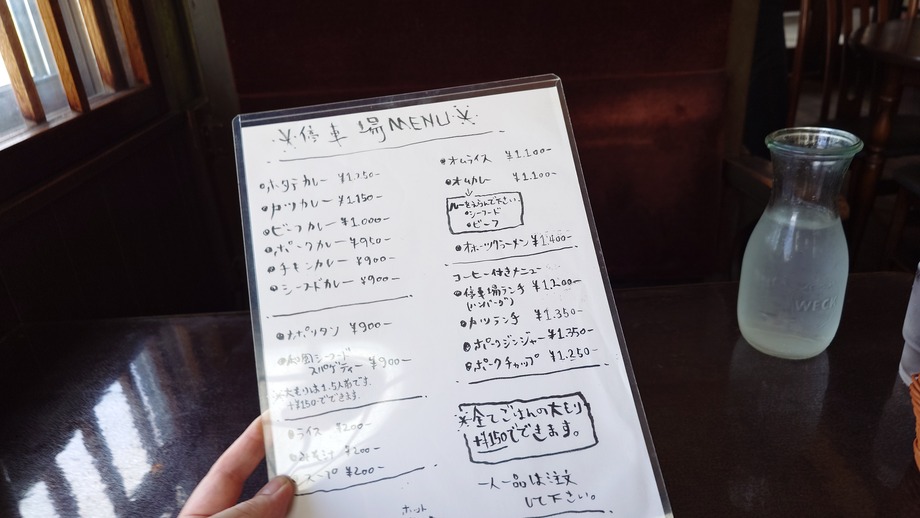 停車場MENU
●ホタテカレー ¥1.250-
●カツカレー ¥1.150-
●ビーフカレー ¥1.000-
●ポークカレー ¥950-
●チキンカレー ¥900-
●シーフードカレー ¥900-
●ナポリタン ¥900-
シーフード
スパゲティー ¥900-
※大もりは1.5人前です。
+¥150でできます。
●ライス ¥200-
●みそ汁 ¥200-
スープ ¥200-
ホット
●オムライス ¥1.100-
●オムカレー ¥1.100-
↓
ルーをえらんで下さい。
●シーフード
●ビーフ
●オホーツクラーメン ¥1.400-
コーヒー付きメニュー
●停車場ランチ ¥1.200-
(ハンバーグ)
●カツランチ ¥1.350-
●ポークジンジャー ¥1.350-
●ポークチャップ ¥1.250-
※全てごはんの大もり
+¥150でできます。
一人一品は注文
して下さい。
WECK